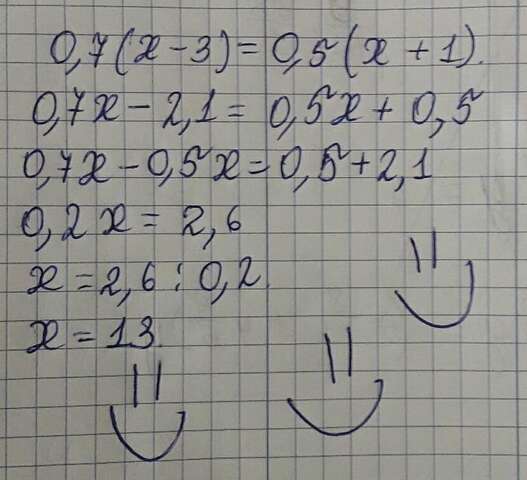 0,7(x-3)=0,5(x+1).
0,7x-2,1=0,5x+0,5
0,7x-0,5x=0,5+2,1
0,2x=2,6
x=2,6:0,2
x=13